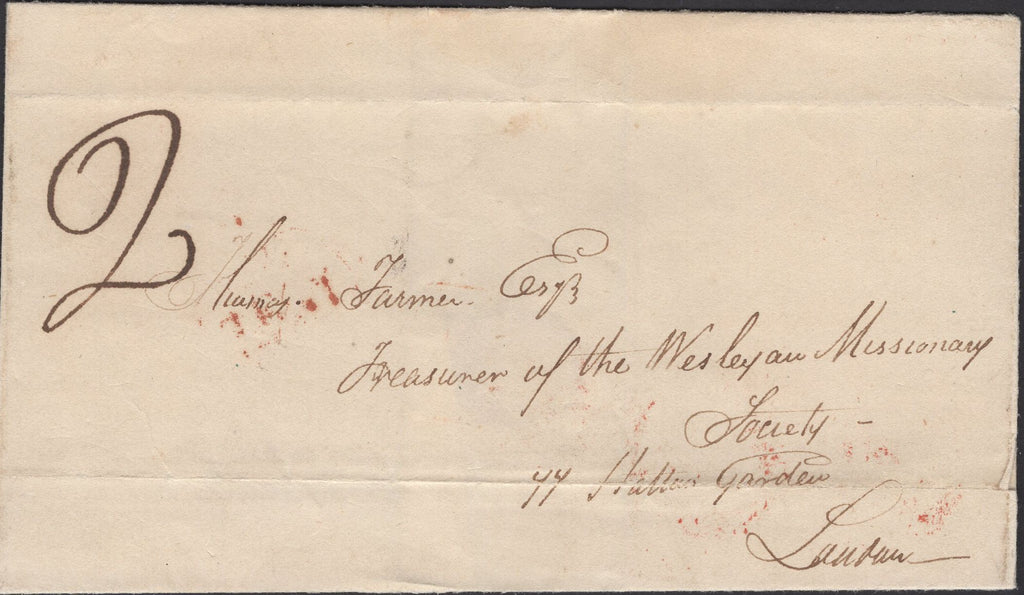 2
Thomas Farmer Esqr
Treasurer of the Wesleyan Missionary
Society -
77 Hatton Garden
London